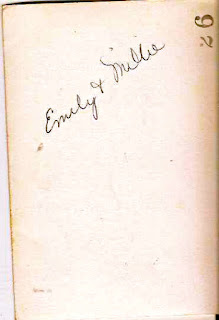 Emily & Millie
26